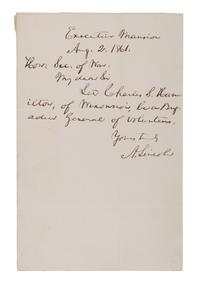 Executive Mansion
Aug. 2. 1861.
Hon. Sec. of War.
My dear Sir
Let Charles S. Ham
ilton, of Wisconsin, be a Brig
adier General of Volunteers.
Yours truly
A. Lincoln